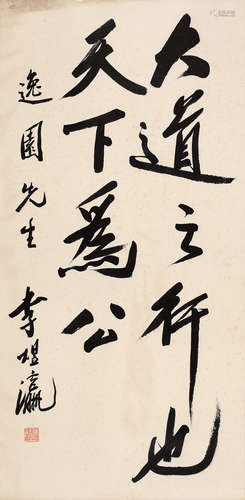 大道之行也
天下爲公
逸園先生
李煜瀛